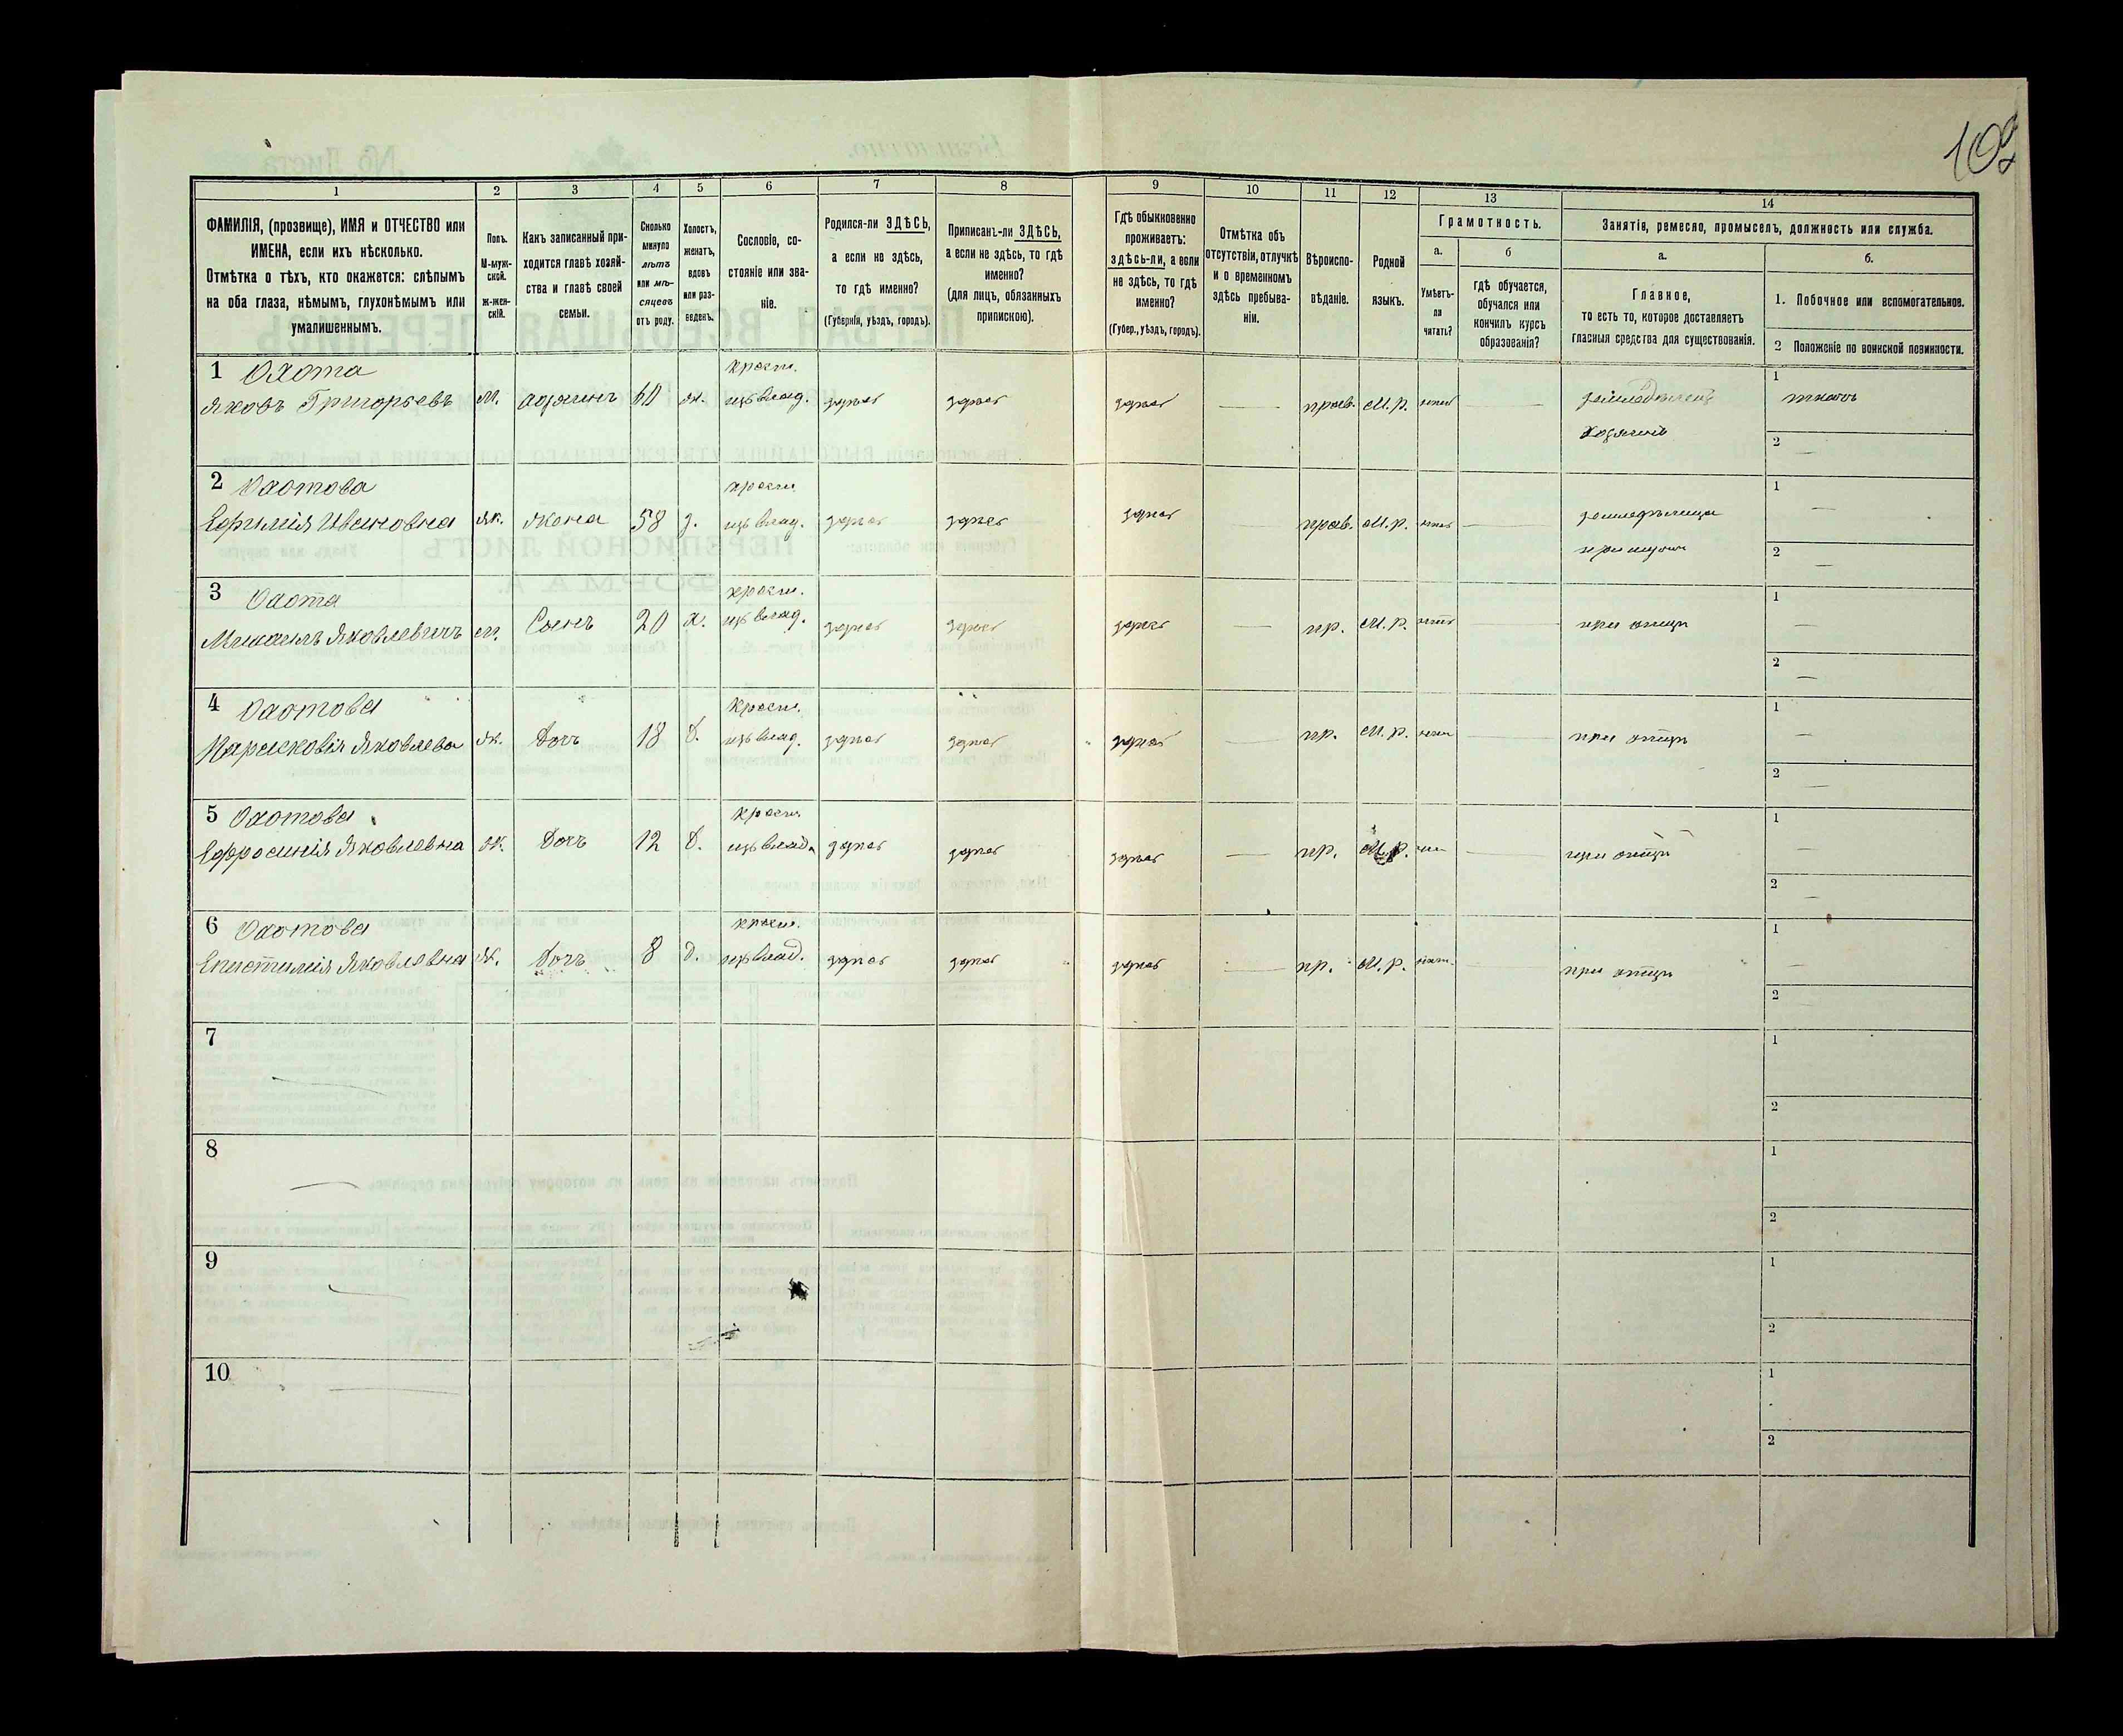 109
1 2 3 4 5 6 7 8 9 10 11 12 13 14
ФАМИЛІЯ, (прозвище), ИМЯ и ОТЧЕСТВО или
ИМЕНА, если ихъ нѣсколько.
Отмѣтка о тѣхъ, кто окажется: слѣпымъ
на оба глаза, нѣмымъ, глухонѣмымъ или
умалишеннымъ.
Полъ.
М-муж-
ской.
ж-жен-
скій.
Какъ записанный при-
ходится главѣ хозяй-
ства и главѣ своей
семьи.
Сколько
минуло
лѣтъ
или мѣ-
сяцевъ
отъ роду.
Холостъ,
женатъ,
вдовъ
или раз-
веденъ.
Сословіе, со-
стояніе или зва-
ніе.
Родился-ли ЗДѢСЬ,
а если не здѣсь,
то гдѣ именно?
(Губернія, уѣздъ, городъ).
Приписанъ-ли ЗДѢСЬ,
а если не здѣсь, то гдѣ
именно?
(для лицъ, обязанныхъ
припискою).
Гдѣ обыкновенно
проживаетъ:
здѣсь-ли, а если
не здѣсь, то гдѣ
именно?
(Губер., уѣздъ, городъ).
Отмѣтка объ
отсутствіи, отлучкѣ
и о временномъ
здѣсь пребыва-
ніи.
Вѣроиспо-
вѣданіе.
Родной
языкъ.
Грамотность.
а.
Умѣетъ-
ли
читать?
б
гдѣ обучается,
обучался или
кончилъ курсъ
образованія?
Занятія, ремесло, промыселъ, должность или служба.
а.
Главное,
то есть то, которое доставляетъ
главныя средства для существованія.
б.
1. Побочное или вспомогательное.
2 Положеніе по воинской повинности.
1 Охота крест.
Яковъ Григорьевъ м. хозяинъ 60 ж. изъ влад. здѣсь здѣсь здѣсь — прав. м.р. нѣтъ — земледѣлецъ 1 ткачъ
хозяинъ 2 —
2 Охотова крест.
Ефимія Ивановна ж. жена 58 з. изъ влад. здѣсь здѣсь здѣсь прав. м.р. нѣтъ — 1 —
при мужѣ 2 —
3 Охота крест.
Михаилъ Яковлевичъ м. Сынъ 20 х. изъ влад. здѣсь здѣсь здѣсь — пр. м.р. нѣтъ — при отцѣ 1 —
2 —
4 Охотова крест.
Парасковія Яковлева ж. Дочь 18 д. изъ влад. здѣсь здѣсь здѣсь — пр. м.р. нѣтъ — при отцѣ 1 —
2 —
5 Охотова крест.
Ефросинія Яковлевна ж. Дочь 12 д. изъ влад. здѣсь здѣсь здѣсь — пр. м.р. — при отцѣ 1 —
2 —
6 Охотова крест.
Епистимія Яковлевна ж. Дочь 8 д. изъ влад. здѣсь здѣсь здѣсь — пр. м.р. нѣтъ — при отцѣ 1 —
2 —
7 — 1
2
8 — 1
2
9 — 1
2
10 — 1
2